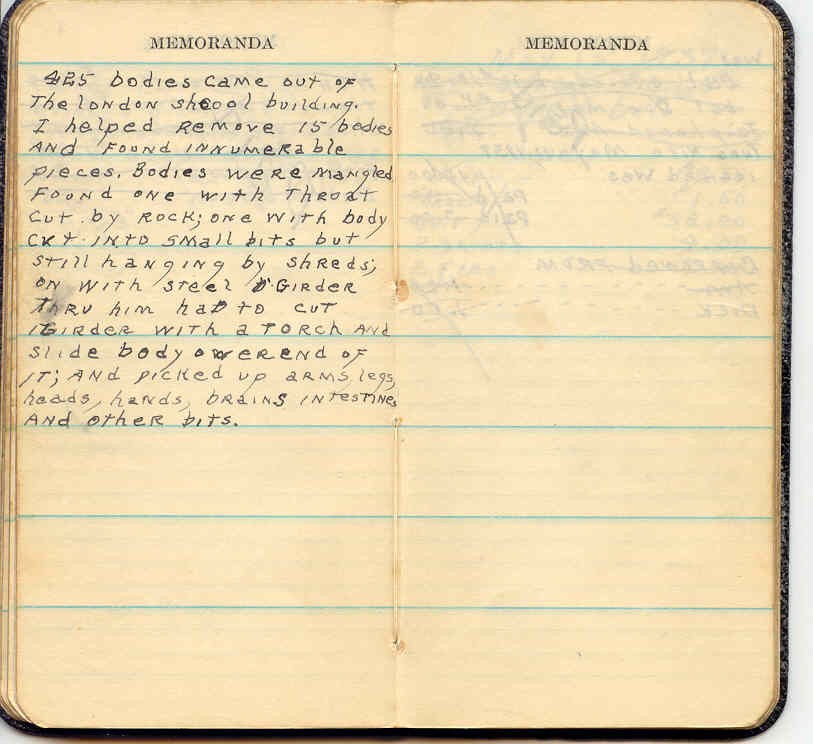 MEMORANDA
425 bodies came out of
The london shcool building.
I helped Remove 15 bodies
AND Found INNUMERable
pieces. Bodies were mangled
Found one with Throat
Cut by Rock; one with body
cut into small bits but
still hanging by shreds;
on with steel GIRDER
THRU him had to cut
GIRDER with a TORCH AND
slide body over END of
IT; AND picked up arms, legs,
heads, hands, brains intestines
AND other bits.
MEMORANDA